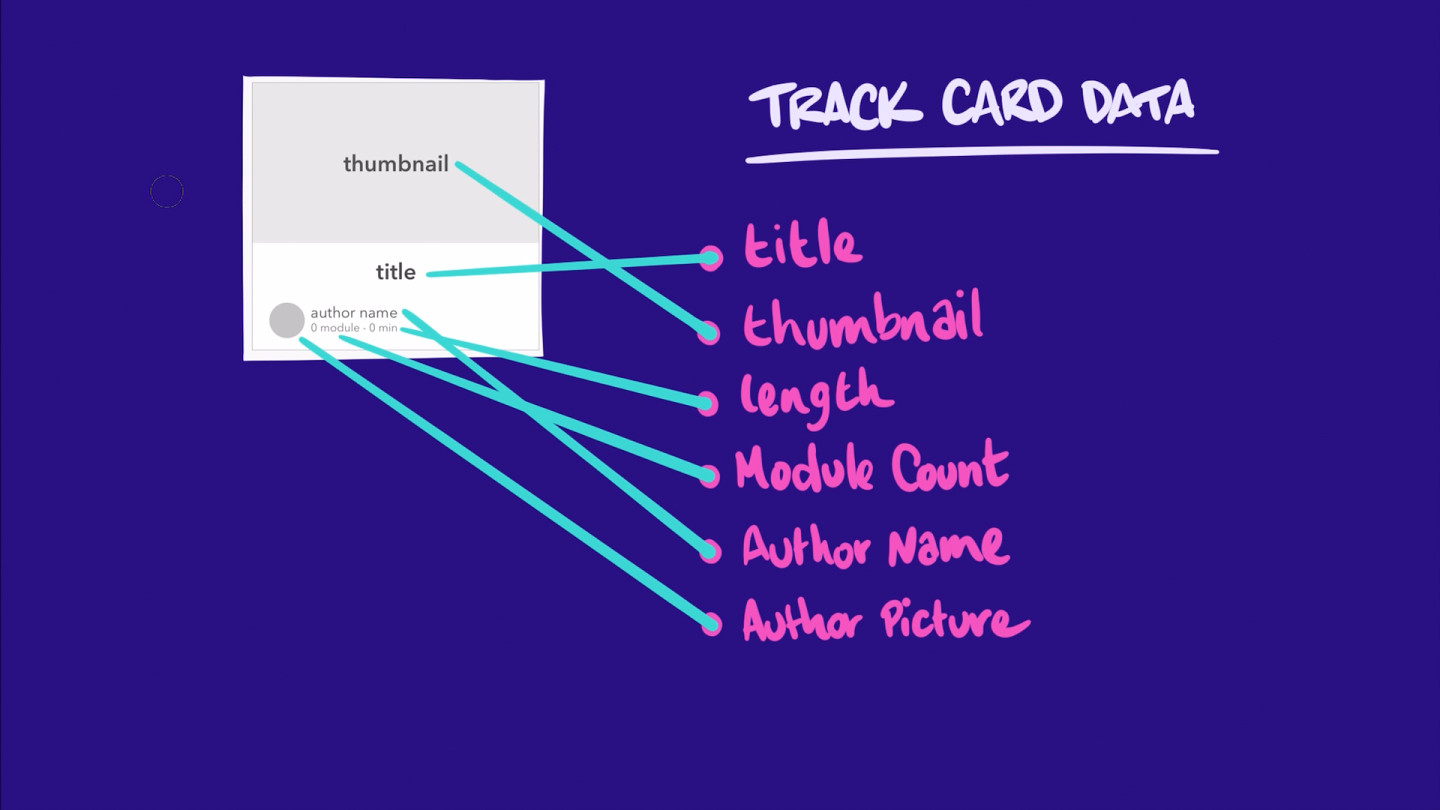 thumbnail
title
author name
0 module - 0 min
TRACK CARD DATA
title
thumbnail
length
Module Count
Author Name
Author Picture